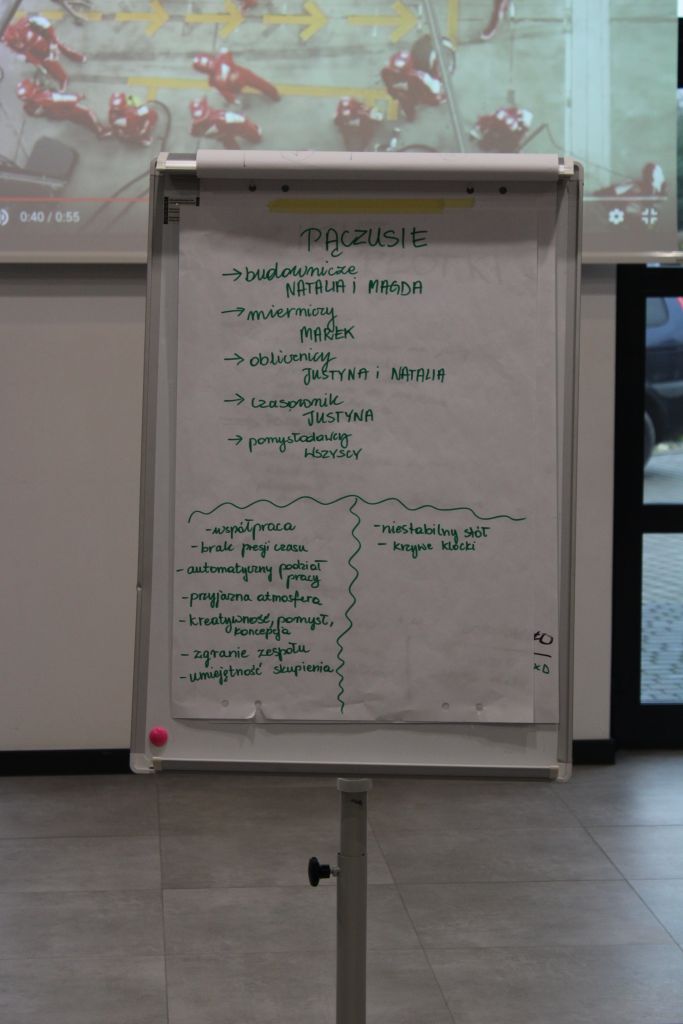 0:40 / 0:55
PĄCZUSIE
→ budownicze
NATALIA i MAGDA
→ mierniczy
MAREK
→ oblicznicy
JUSTYNA i NATALIA
→ czasownik
JUSTYNA
→ pomysłodawcy
WSZYSCY
- współpraca
- brak presji czasu
- automatyczny podział
pracy
- przyjazna atmosfera
- kreatywność, pomysł,
koncepcja
- zgranie zespołu
- umiejętność skupienia
- niestabilny stół
- krzywe klocki